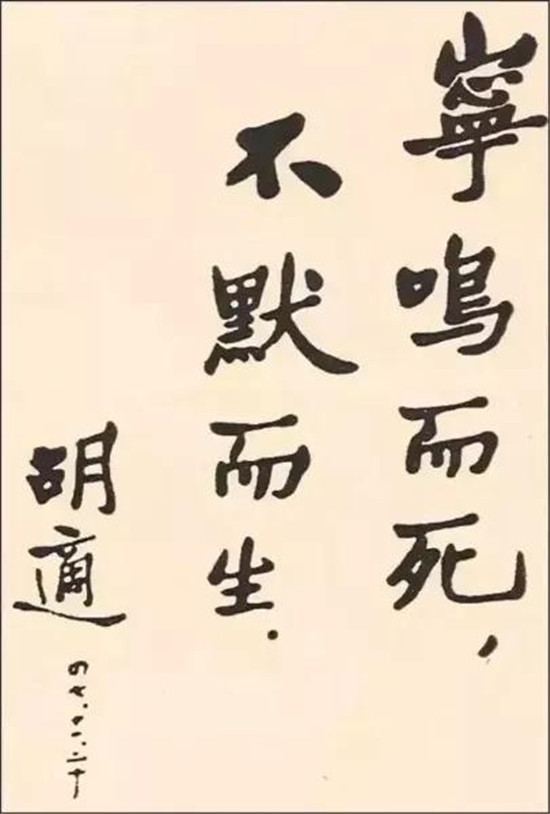 寧鳴而死,
不默而生.
胡適
四七.十二.二十